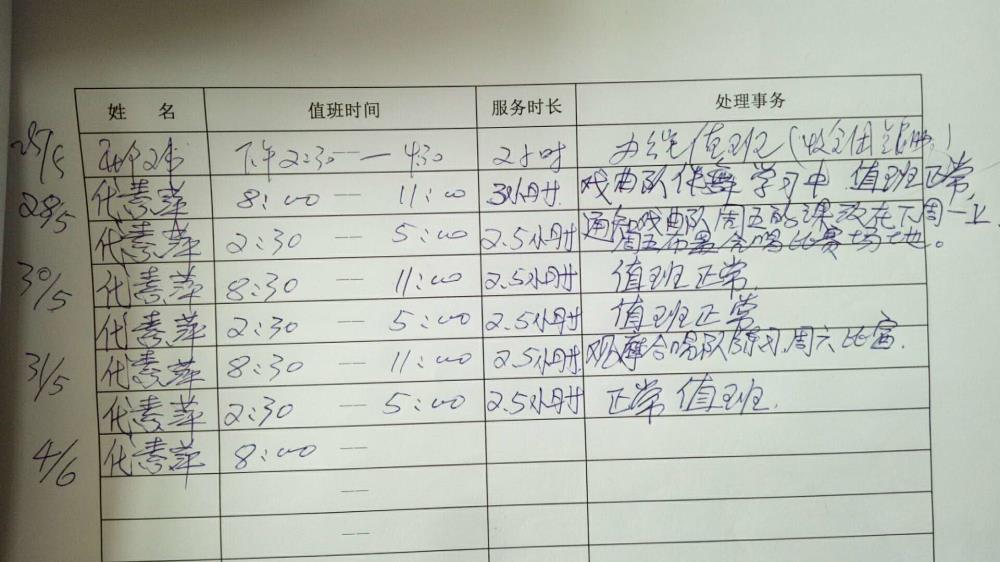 姓 名 值班时间 服务时长 处理事务
下午2:30 — 4:30 2小时 办公室值班
28/5 代素萍 8:00 — 11:00 3小时 戏曲队伴舞学习中,值班正常,
代素萍 2:30 — 5:00 2.5小时 通知戏曲队周五的课改在下周一上
周五布置合唱比赛场地。
30/5 代素萍 8:30 — 11:00 2.5小时 值班正常
代素萍 2:30 — 5:00 2.5小时 值班正常
31/5 代素萍 8:30 — 11:00 2.5小时 观摩合唱队练习,周六比赛.
代素萍 2:30 — 5:00 2.5小时 正常值班.
4/6 代素萍 8:00 —
—
—